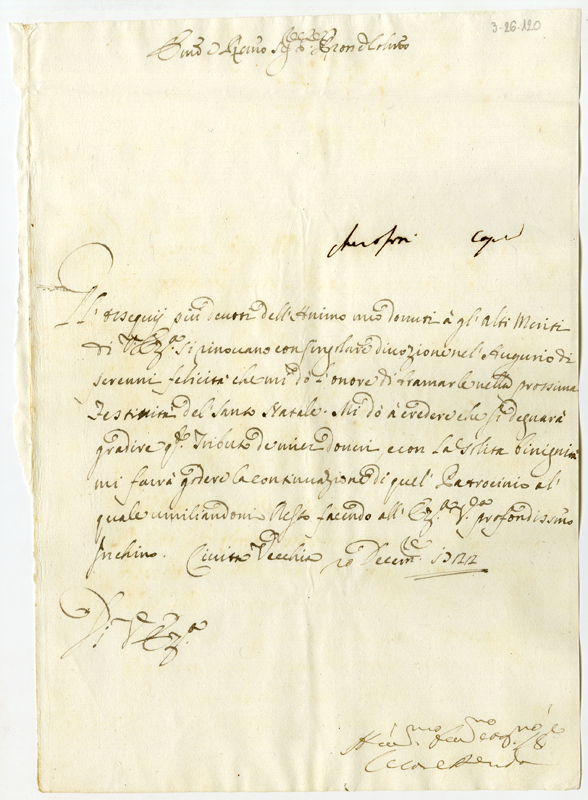 3-26.120
Gl'ossequij più devoti dell'Animo mio douuti à gl'Alti Meriti
di V.ra Ecz.a si rinouano con singolare diuozione nel'Augurio di
serenni felicità che mi dò l'onore di bramarle nella prossima
Festiuità del Santo Natale. Mi dò à credere che si degnarà
gradire q.to Tributo de miei doueri e con La solita benignità
mi farà godere la continuazione di quel'Patrocinio al'
quale umiliandomi Resto facendo all'Ecz.a V.ra profondissimo
Inchino. Ciuita Vecchia 20 Decem.re 1722
Di V.ra Ecz.a